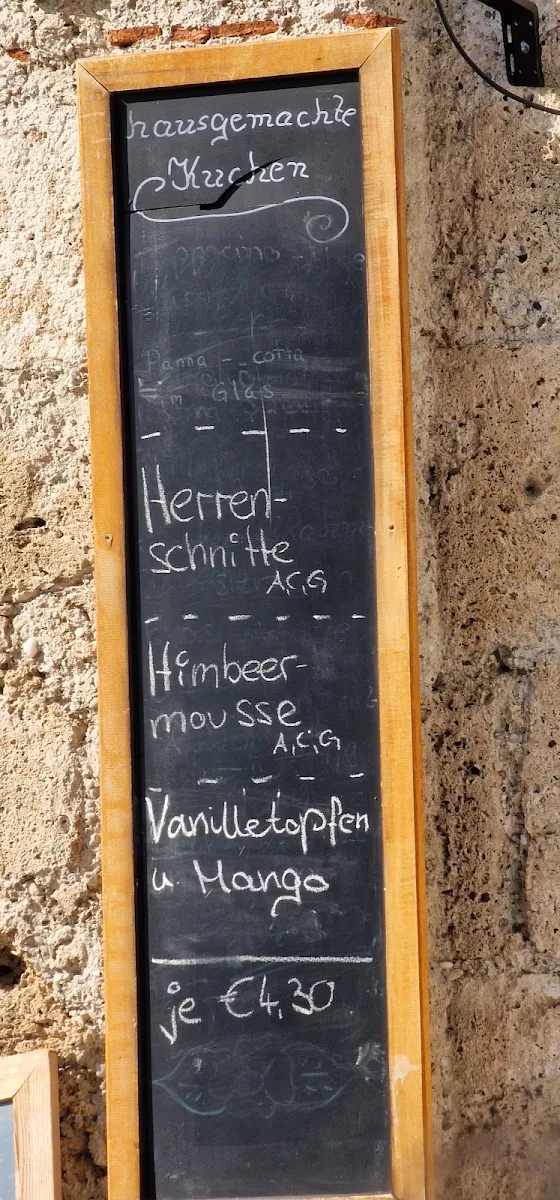 hausgemachte
Kuchen
Panna - cotta
im Glas
Herren-
schnitte
A,C,G
Himbeer-
mousse
A,C,G
Vanilletopfen
u. Mango
je €4,30